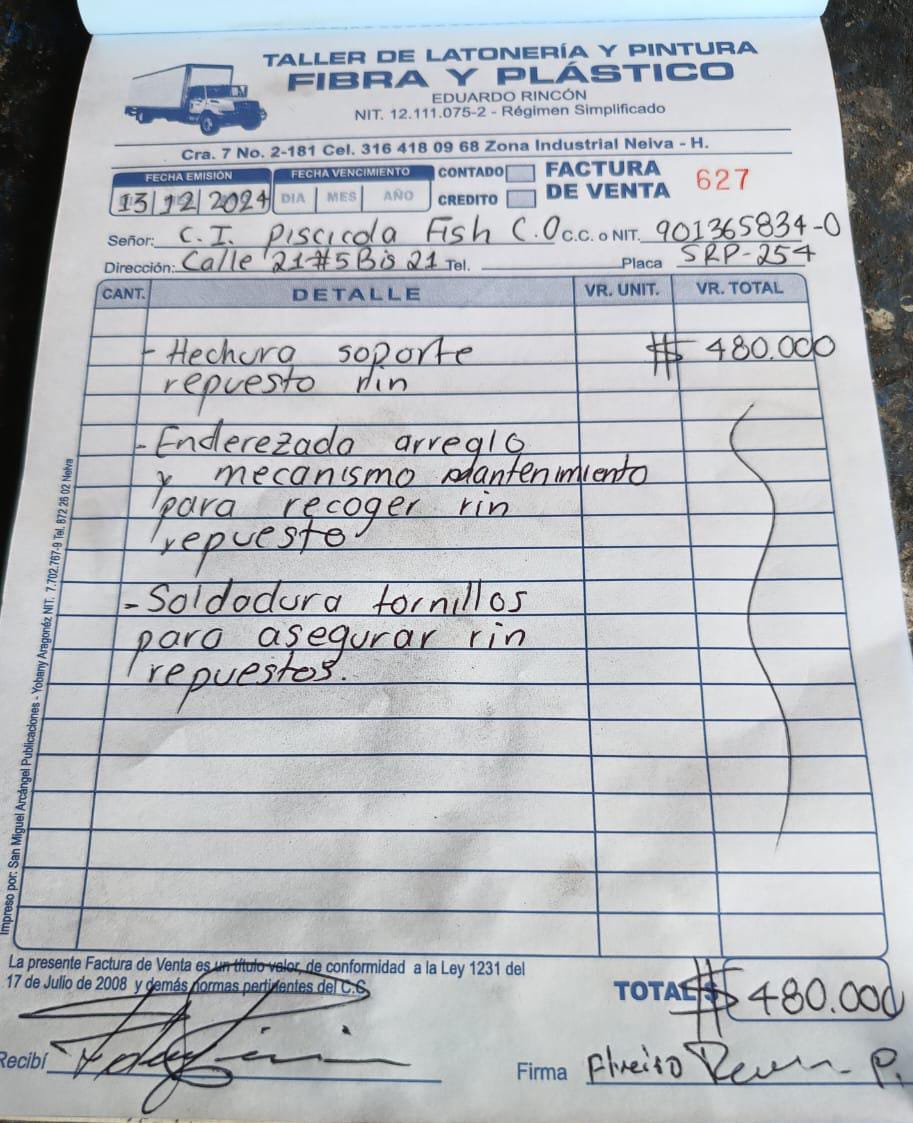 TALLER DE LATONERÍA Y PINTURA
FIBRA Y PLÁSTICO
EDUARDO RINCÓN
NIT. 12.111.075-2 - Régimen Simplificado
Cra. 7 No. 2-181 Cel. 316 418 09 68 Zona Industrial Neiva - H.
FECHA EMISIÓN FECHA VENCIMIENTO CONTADO FACTURA
DE VENTA 627
13 12 2024 DIA MES AÑO CREDITO
Señor: C. I. Piscicola Fish C.O C.C. o NIT. 901365834-0
Dirección: Calle 21#5 Bis 21 Tel. Placa SRP-254
CANT. DETALLE VR. UNIT. VR. TOTAL
- Hechura soporte $ 480.000
repuesto rin
- Enderezada arreglo
y mecanismo mantenimiento
para recoger rin
repuesto
- Soldadura tornillos
para asegurar rin
repuestos.
Impreso por: San Miguel Arcángel Publicaciones - Yobany Aragonéz NIT. 7.702.767-9 Tel. 872 26 02 Neiva
La presente Factura de Venta es un título valor, de conformidad a la Ley 1231 del
17 de Julio de 2008 y demás normas pertinentes del C.C.
TOTAL $ 480.000
Recibí
Firma